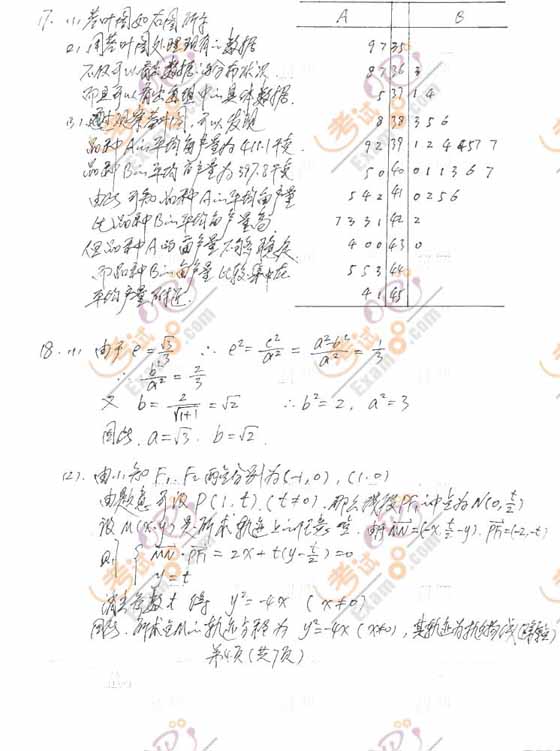 17. (1) 茎叶图如右图所示
(2) 用茎叶图处理现有的数据
不仅可以看出数据的分布状况
而且可以看出每组中的具体数据.
(3) 通过观察茎叶图, 可以发现
品种A的平均亩产量为411.1千克
品种B的平均亩产量为397.8千克
由此可知 品种A的平均亩产量
比品种B的平均亩产量高
但品种A的亩产量不够稳定
而品种B的亩产量比较集中在
平均产量附近.
A B
9 7 35
8 7 36 3
5 37 1 4
8 38 3 5 6
9 2 39 1 2 4 4 5 7 7
5 0 40 0 1 1 3 6 7
5 4 2 41 0 2 5 6
7 3 3 1 42 2
4 0 0 43 0
5 5 3 44
4 1 45
18. (1) 由于 e = √3/3 ∴ e² = c²/a² = (a²-b²)/a² = 1/3
∴ b²/a² = 2/3
又 b = 2/√(1+1) = √2 ∴ b² = 2, a² = 3
因此, a = √3. b = √2.
(2). 由(1)知 F₁. F₂ 两点分别为(-1,0), (1.0)
由题意可设 P(1.t). (t≠0). 那么线段PF₁的中点为N(0,t/2)
设M(x.y)是所求轨迹上的任意点. 由于MN=(-x, t/2-y). PF₁=(-2,-t)
则 { MN·PF₁ = 2x+t(y-t/2)=0
y = t
消去参数t 得 y²=-4x (x≠0)
因此, 所求点M的轨迹方程为 y²=-4x (x≠0), 其轨迹为抛物线
第4页(共7页)
考试
Exam88.com